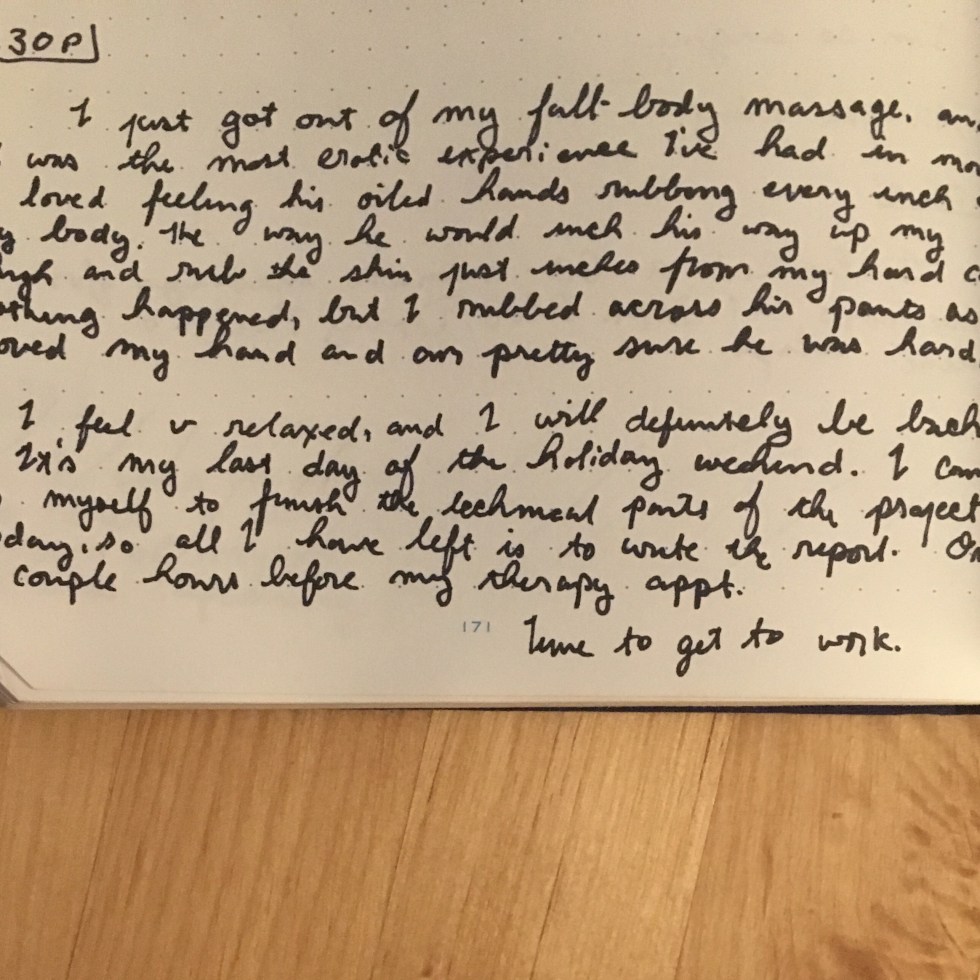 30P
I just got out of my full-body massage, an
was the most erotic experience I've had in mo
loved feeling his oiled hands rubbing every inch
y body. The way he would inch his way up my
igh and rub the skin just inches from my hard c
othing happened, but I rubbed across his pants as
oved my hand and am pretty sure he was hard.
I feel v relaxed, and I will definitely be back
It's my last day of the holiday weekend. I can
myself to finish the technical parts of the project
day, so all I have left is to write the report. On
couple hours before my therapy appt.
171
Time to get to work.